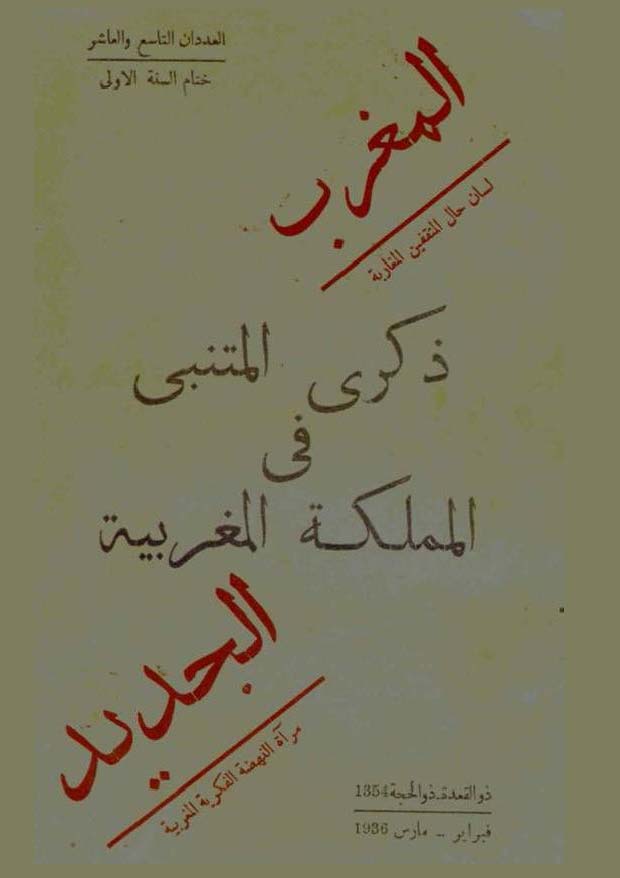 العددان التاسع والعاشر
ختام السنة الاولى
المغرب
لسان حال المثقفين المغاربة
ذكرى المتنبى
فى
المملكة المغربية
الجديد
مرآة النهضة الفكرية المغربية
ذو القعدة ـ ذو الحجة 1354
فبراير -- مارس 1936